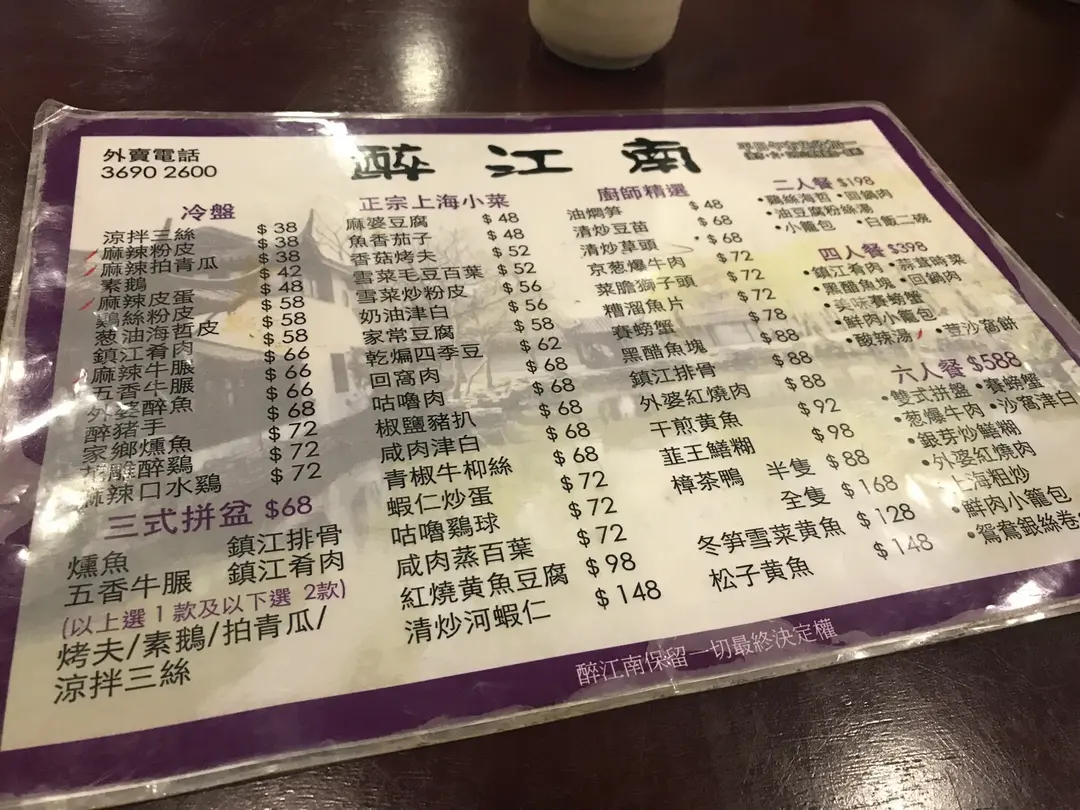 外賣電話
3690 2600
醉江南
冷盤
涼拌三絲 $38
麻辣粉皮 $38
麻辣拍青瓜 $38
素鵝 $42
麻辣皮蛋 $48
鷄絲粉皮 $58
葱油海哲皮 $58
鎮江肴肉 $58
麻辣牛𦟌 $66
五香牛𦟌 $66
外婆醉魚 $66
醉豬手 $68
家鄉燻魚 $72
花雕醉鷄 $72
麻辣口水鷄 $72
三式拼盆 $68
燻魚 鎮江排骨
五香牛𦟌 鎮江肴肉
(以上選 1 款及以下選 2款)
烤夫/素鵝/拍青瓜/
涼拌三絲
正宗上海小菜
麻婆豆腐 $48
魚香茄子 $48
香菇烤夫 $52
雪菜毛豆百葉 $52
雪菜炒粉皮 $56
奶油津白 $56
家常豆腐 $58
乾煸四季豆 $62
回窩肉 $68
咕嚕肉 $68
椒鹽豬扒 $68
咸肉津白 $68
青椒牛柳絲 $68
蝦仁炒蛋 $72
咕嚕鷄球 $72
咸肉蒸百葉 $72
紅燒黄魚豆腐 $98
清炒河蝦仁 $148
廚師精選
油燜笋 $48
清炒豆苗 $68
清炒草頭 $68
京葱爆牛肉 $72
菜膽獅子頭 $72
糟溜魚片 $72
賽螃蟹 $78
黑醋魚塊 $88
鎮江排骨 $88
外婆紅燒肉 $88
干煎黄魚 $92
韮王鱔糊 $98
樟茶鴨 半隻 $88
全隻 $168
冬笋雪菜黄魚 $128
松子黄魚 $148
二人餐 $198
•鷄絲海哲 •回鍋肉
•油豆腐粉絲湯
•小籠包 •白飯二碗
四人餐 $398
•鎮江肴肉 •蒜茸時菜
•黑醋魚塊 •回鍋肉
•美味賽螃蟹
•鮮肉小籠包
•酸辣湯 •荳沙窩餅
六人餐 $588
•雙式拼盤 •賽螃蟹
•葱爆牛肉 •沙窩津白
•銀芽炒鱔糊
•外婆紅燒肉
•上海粗炒
•鮮肉小籠包
•鴛鴦銀絲卷
醉江南保留一切最終決定權